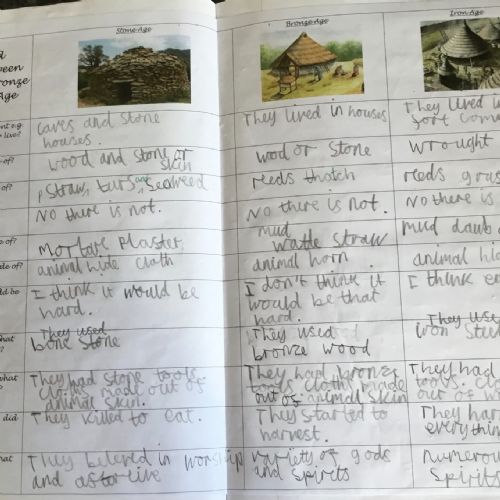 Stone Age
Bronze Age
Iron Age
ween
ronze
Age
caves and stone
houses.
They lived in houses
They lived i
fort
wood and stone or
skin
wood or stone
wrought
straw, turs, and seaweed
reeds thatch
reeds gras
No there is not.
No there is not.
No there is
Mortare plaster,
mud
wattle straw
mud daub
animal hide cloth
animal horn.
animal hi
I think it would be
hard.
I don't think it
would be that
hard.
I think
They used
bone stone
They used
bronze wood
They use
iron steel
They had stone tools
cloths made out of
animal skin.
They had bronze
tools cloths made
out of animal skin
They had
tools. cl
out of w
They killed to eat.
They started to
harvest.
They har
everythin
They beleved in worship
and
variety of gods
and spirits
numerou
spirits